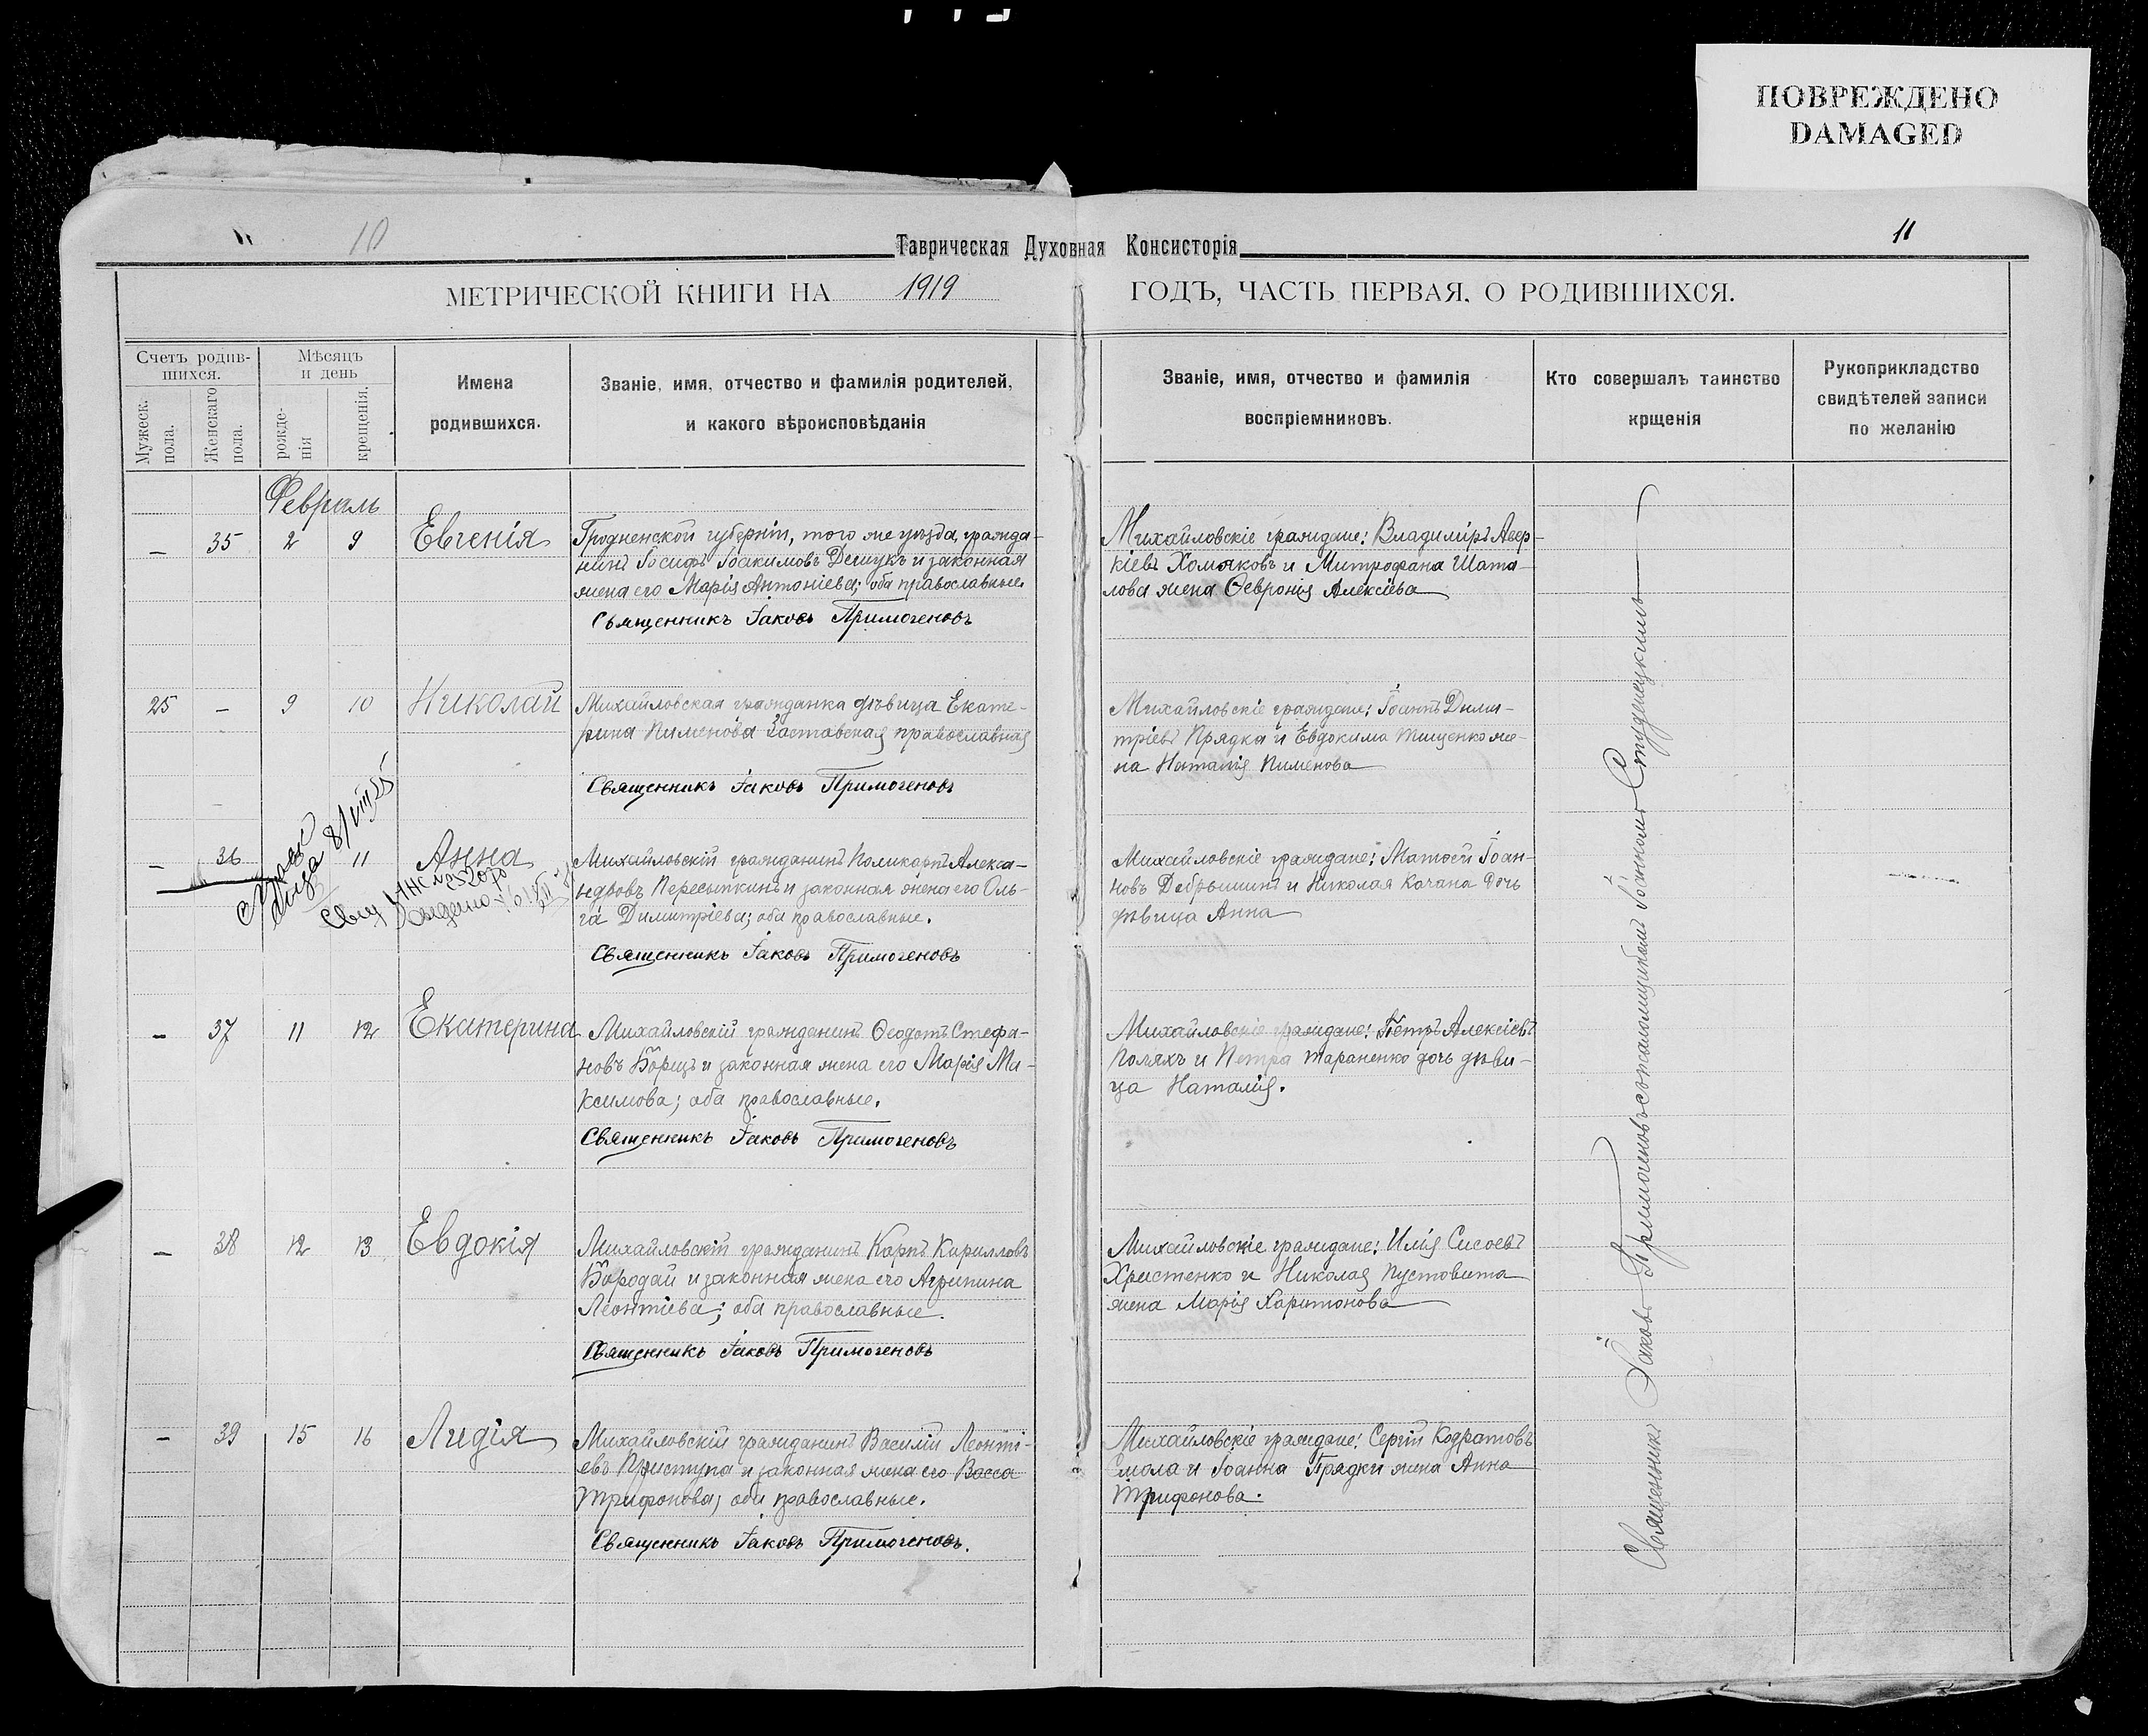 ПОВРЕЖДЕНО
DAMAGED
10
11
Таврическая Духовная Консисторія
МЕТРИЧЕСКОЙ КНИГИ НА 1919 ГОДЪ, ЧАСТЬ ПЕРВАЯ, О РОДИВШИХСЯ.
Счетъ родив-
шихся.
Мужеск.
пола.
Женскаго
пола.
Мѣсяцъ
и день
рожде-
нія
крещенія.
Имена
родившихся.
Званіе, имя, отчество и фамилія родителей,
и какого вѣроисповѣданія
Званіе, имя, отчество и фамилія
воспріемниковъ.
Кто совершалъ таинство
крщенія
Рукоприкладство
свидѣтелей записи
по желанію
Февраль
— 35 2 9 Евгенія
Гродненской губерніи, того же уѣзда, гражда-
нинъ Іосифъ Іоакимовъ Демукъ и законная
жена его Марія Антоніева; оба православные.
Священникъ Іаковъ Примогеновъ
Михайловскіе граждане: Владиміръ Авер-
кіевъ Хомяковъ и Митрофана Шата-
лова жена Ѳевронія Алексіева
25 — 9 10 Николай
Михайловская гражданка дѣвица Екате-
рина Пименова Заставская православная
Священникъ Іаковъ Примогеновъ
Михайловскіе граждане: Іоаннъ Дими-
тріевъ Прядка и Евдокима Тищенко же-
на Наталія Пименова
— 36 11 Анна
8/VIII 25
Михайловскій гражданинъ Поликарпъ Алекса-
ндровъ Пересыпкинъ и законная жена его Оль-
га Димитріева; оба православные.
Священникъ Іаковъ Примогеновъ
Михайловскіе граждане: Матѳей Іоан-
новъ Добрышинъ и Николая Качана дочь
дѣвица Анна
— 37 11 12 Екатерина
Михайловскій гражданинъ Ѳеодотъ Стефа-
новъ Борщъ и законная жена его Марія Ма-
ксимова; оба православные.
Священникъ Іаковъ Примогеновъ
Михайловскіе граждане: Петръ Алексіевъ
Поляхъ и Петра Тараненко дочь дѣви-
ца Наталія.
— 38 12 13 Евдокія
Михайловскій гражданинъ Карпъ Кирилловъ
Бородай и законная жена его Агрипина
Леонтіева; оба православные.
Священникъ Іаковъ Примогеновъ
Михайловскіе граждане: Илія Сисоевъ
Христенко и Николая Пустовита
жена Марія Харитонова
— 39 15 16 Лидія
Михайловскій гражданинъ Василій Леонті-
евъ Приступа и законная жена его Васса
Трифонова; оба православные.
Священникъ Іаковъ Примогеновъ.
Михайловскіе граждане: Сергій Кодратовъ
Смола и Іоанна Прядки жена Анна
Трифонова.
Священникъ Іаковъ Примогеновъ съ псаломщикомъ Іоанномъ Студенецкимъ